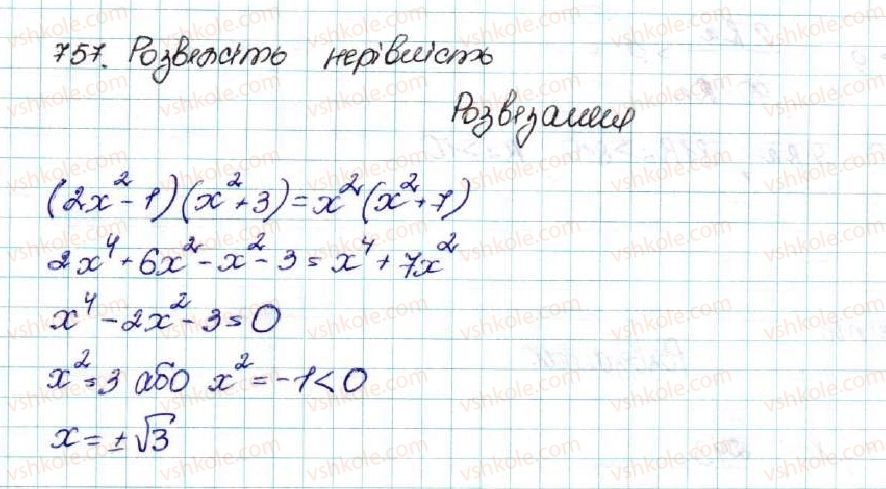 757. Розв'яжіть нерівність
Розв'язання
(2x² - 1)(x² + 3) = x²(x² + 7)
2x⁴ + 6x² - x² - 3 = x⁴ + 7x²
x⁴ - 2x² - 3 = 0
x² = 3 або x² = -1 < 0
x = ±√3